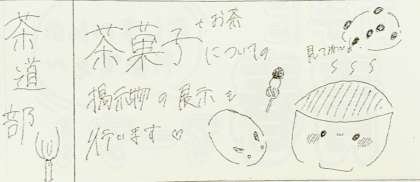 茶道部
茶菓子とお茶
についての
掲示物の展示を
行います♡
見てね